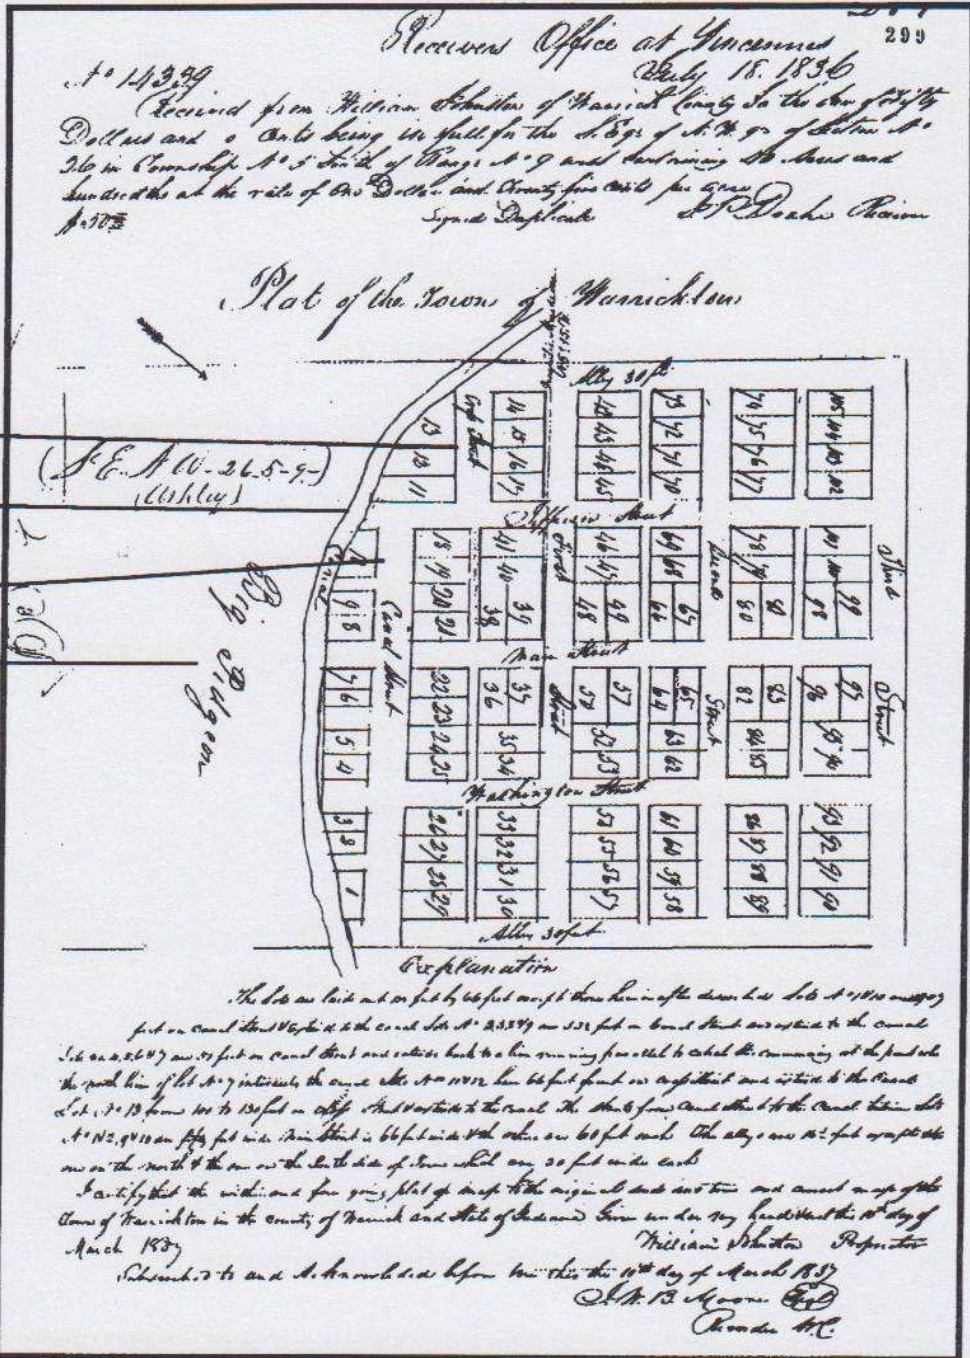 299
Receivers Office at Vincennes
No 14339 July 18. 1836
Received from William Johnston of Warrick County In the sum of Fifty
Dollars and 0 Cents being in full for the S. E qr of N. W. qr of Section No
26 in Township No 5 South of Range No 9 and containing 40 Acres and
hundredths at the rate of One Dollar and Twenty five cents per acre
$50 Signed Duplicate Receiver
Plat of the Town of Warrickton
Alley 30 ft
(S. E. N W - 26. 5 - 9 -)
(Ashley)
Big Pidgeon
Canal
Canal Street
First Street
Second Street
Third Street
Jefferson Street
Main Street
Washington Street
13 12 11
14 15 16 17
42 43 44 45
73 72 71 70
74 75 76 77
105 104 103 102
10 9 8
18 19 20 21
41 40 39 38
46 47 49 48
69 68 67 66
78 79 80
101 100 99 98
7 6 5 4
22 23 24 25
37 36 35 34
51 50 52 53
65 64 63 62
83 82 84 85
97 96 95 94
3 2 1
26 27 28 29
33 32 31 30
54 55 56 57
61 60 59 58
86 87 88 89
93 92 91 90
Alley 30 feet
Explanation
The Lots are laid out feet by 66 feet except those hereinafter described Lots No
feet on Canal Street & extend to the canal Lots No feet on Canal Street and extend to the canal
feet on Canal Street and extends back to a line running parallel to Canal St. commencing at the point where
the north line of lot No 7 intersects the canal Lots No 11 & 12 have 66 feet front on street and extend to the Canal
Lot No 13 from 100 to 130 feet on Street & extends to the canal The streets from Canal Street to the Canal between Lots
No 1 & 2, 9 & 10 are fifty feet wide Main Street is 66 feet wide & the others are 60 feet each The alleys are feet except the
one on the north & the one on the South side of Town which are 30 feet wide each
I certify that the within and foregoing plat or map to the original and is a true and correct map of the
Town of Warrickton in the county of Warrick and State of Indiana Given under my hand & seal this 10th day of
March 1837 William Johnston Proprietor
Subscribed to and Acknowledged before me this the 10th day of March 1837
J. W. B. Moore
Recorder W.C.